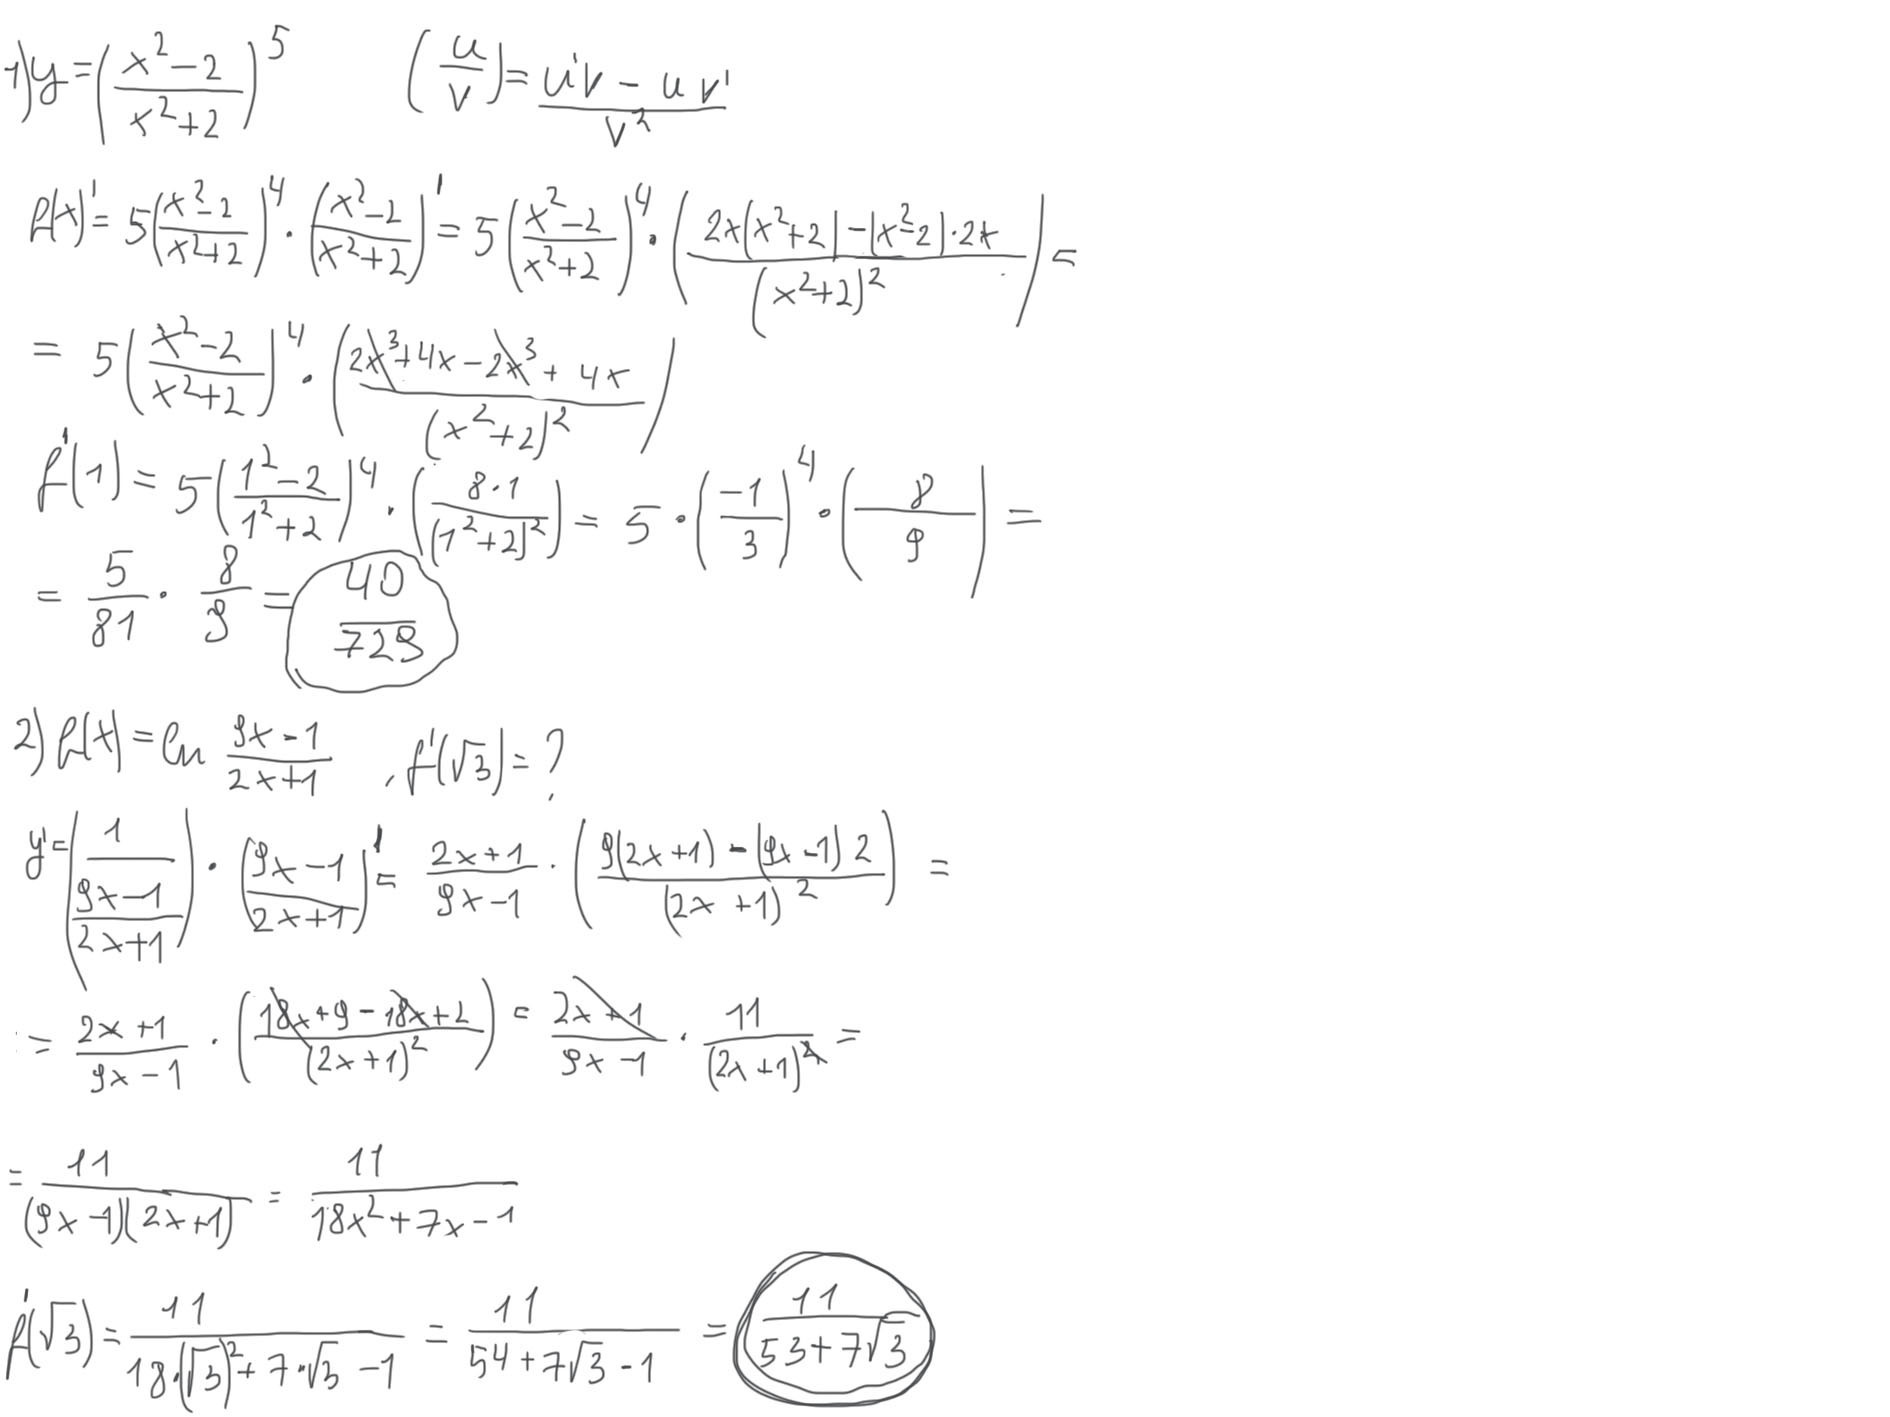 1) y = (x²-2 / x²+2)⁵ (u/v) = u'v - uv' / v²
f(x)' = 5(x²-2 / x²+2)⁴ · (x²-2 / x²+2)' = 5(x²-2 / x²+2)⁴ · (2x(x²+2) - (x²-2)·2x / (x²+2)²) =
= 5(x²-2 / x²+2)⁴ · (2x³+4x-2x³+4x / (x²+2)²)
f'(1) = 5(1²-2 / 1²+2)⁴ · (8·1 / (1²+2)²) = 5 · (-1 / 3)⁴ · (8 / 9) =
= 5/81 · 8/9 = 40/729
2) f(x) = ln 9x-1 / 2x+1 , f'(√3) = ?
y' = (1 / 9x-1 / 2x+1) · (9x-1 / 2x+1)' = 2x+1 / 9x-1 · (9(2x+1) - (9x-1) 2 / (2x+1)²) =
= 2x+1 / 9x-1 · (18x+9-18x+2 / (2x+1)²) = 2x+1 / 9x-1 · 11 / (2x+1)² =
= 11 / (9x-1)(2x+1) = 11 / 18x²+7x-1
f'(√3) = 11 / 18·(√3)²+7·√3-1 = 11 / 54+7√3-1 = 11 / 53+7√3